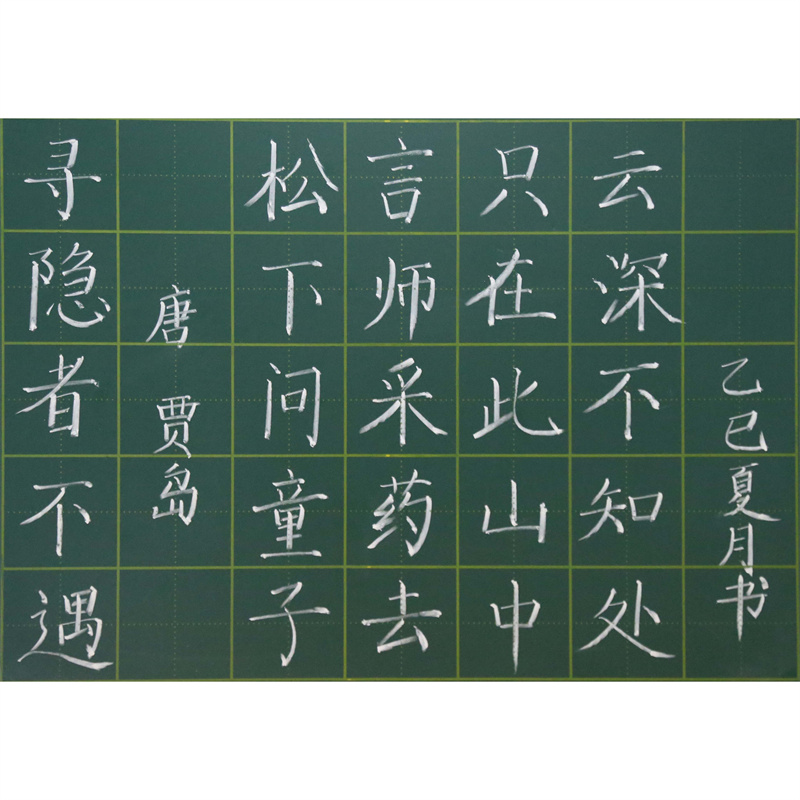 寻隐者不遇
唐 贾岛
松下问童子
言师采药去
只在此山中
云深不知处
乙巳夏月书